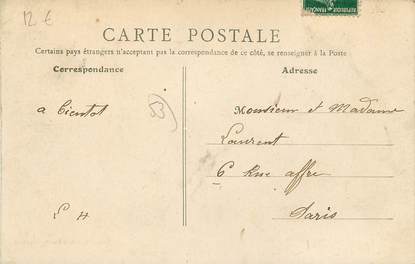 12 €
CARTE POSTALE
Certains pays étrangers n'acceptant pas la correspondance de ce côté, se renseigner à la Poste
Correspondance
Adresse
a Bientot
53
Monsieur et Madame
Laurent
6 Rue affre
Paris
E H